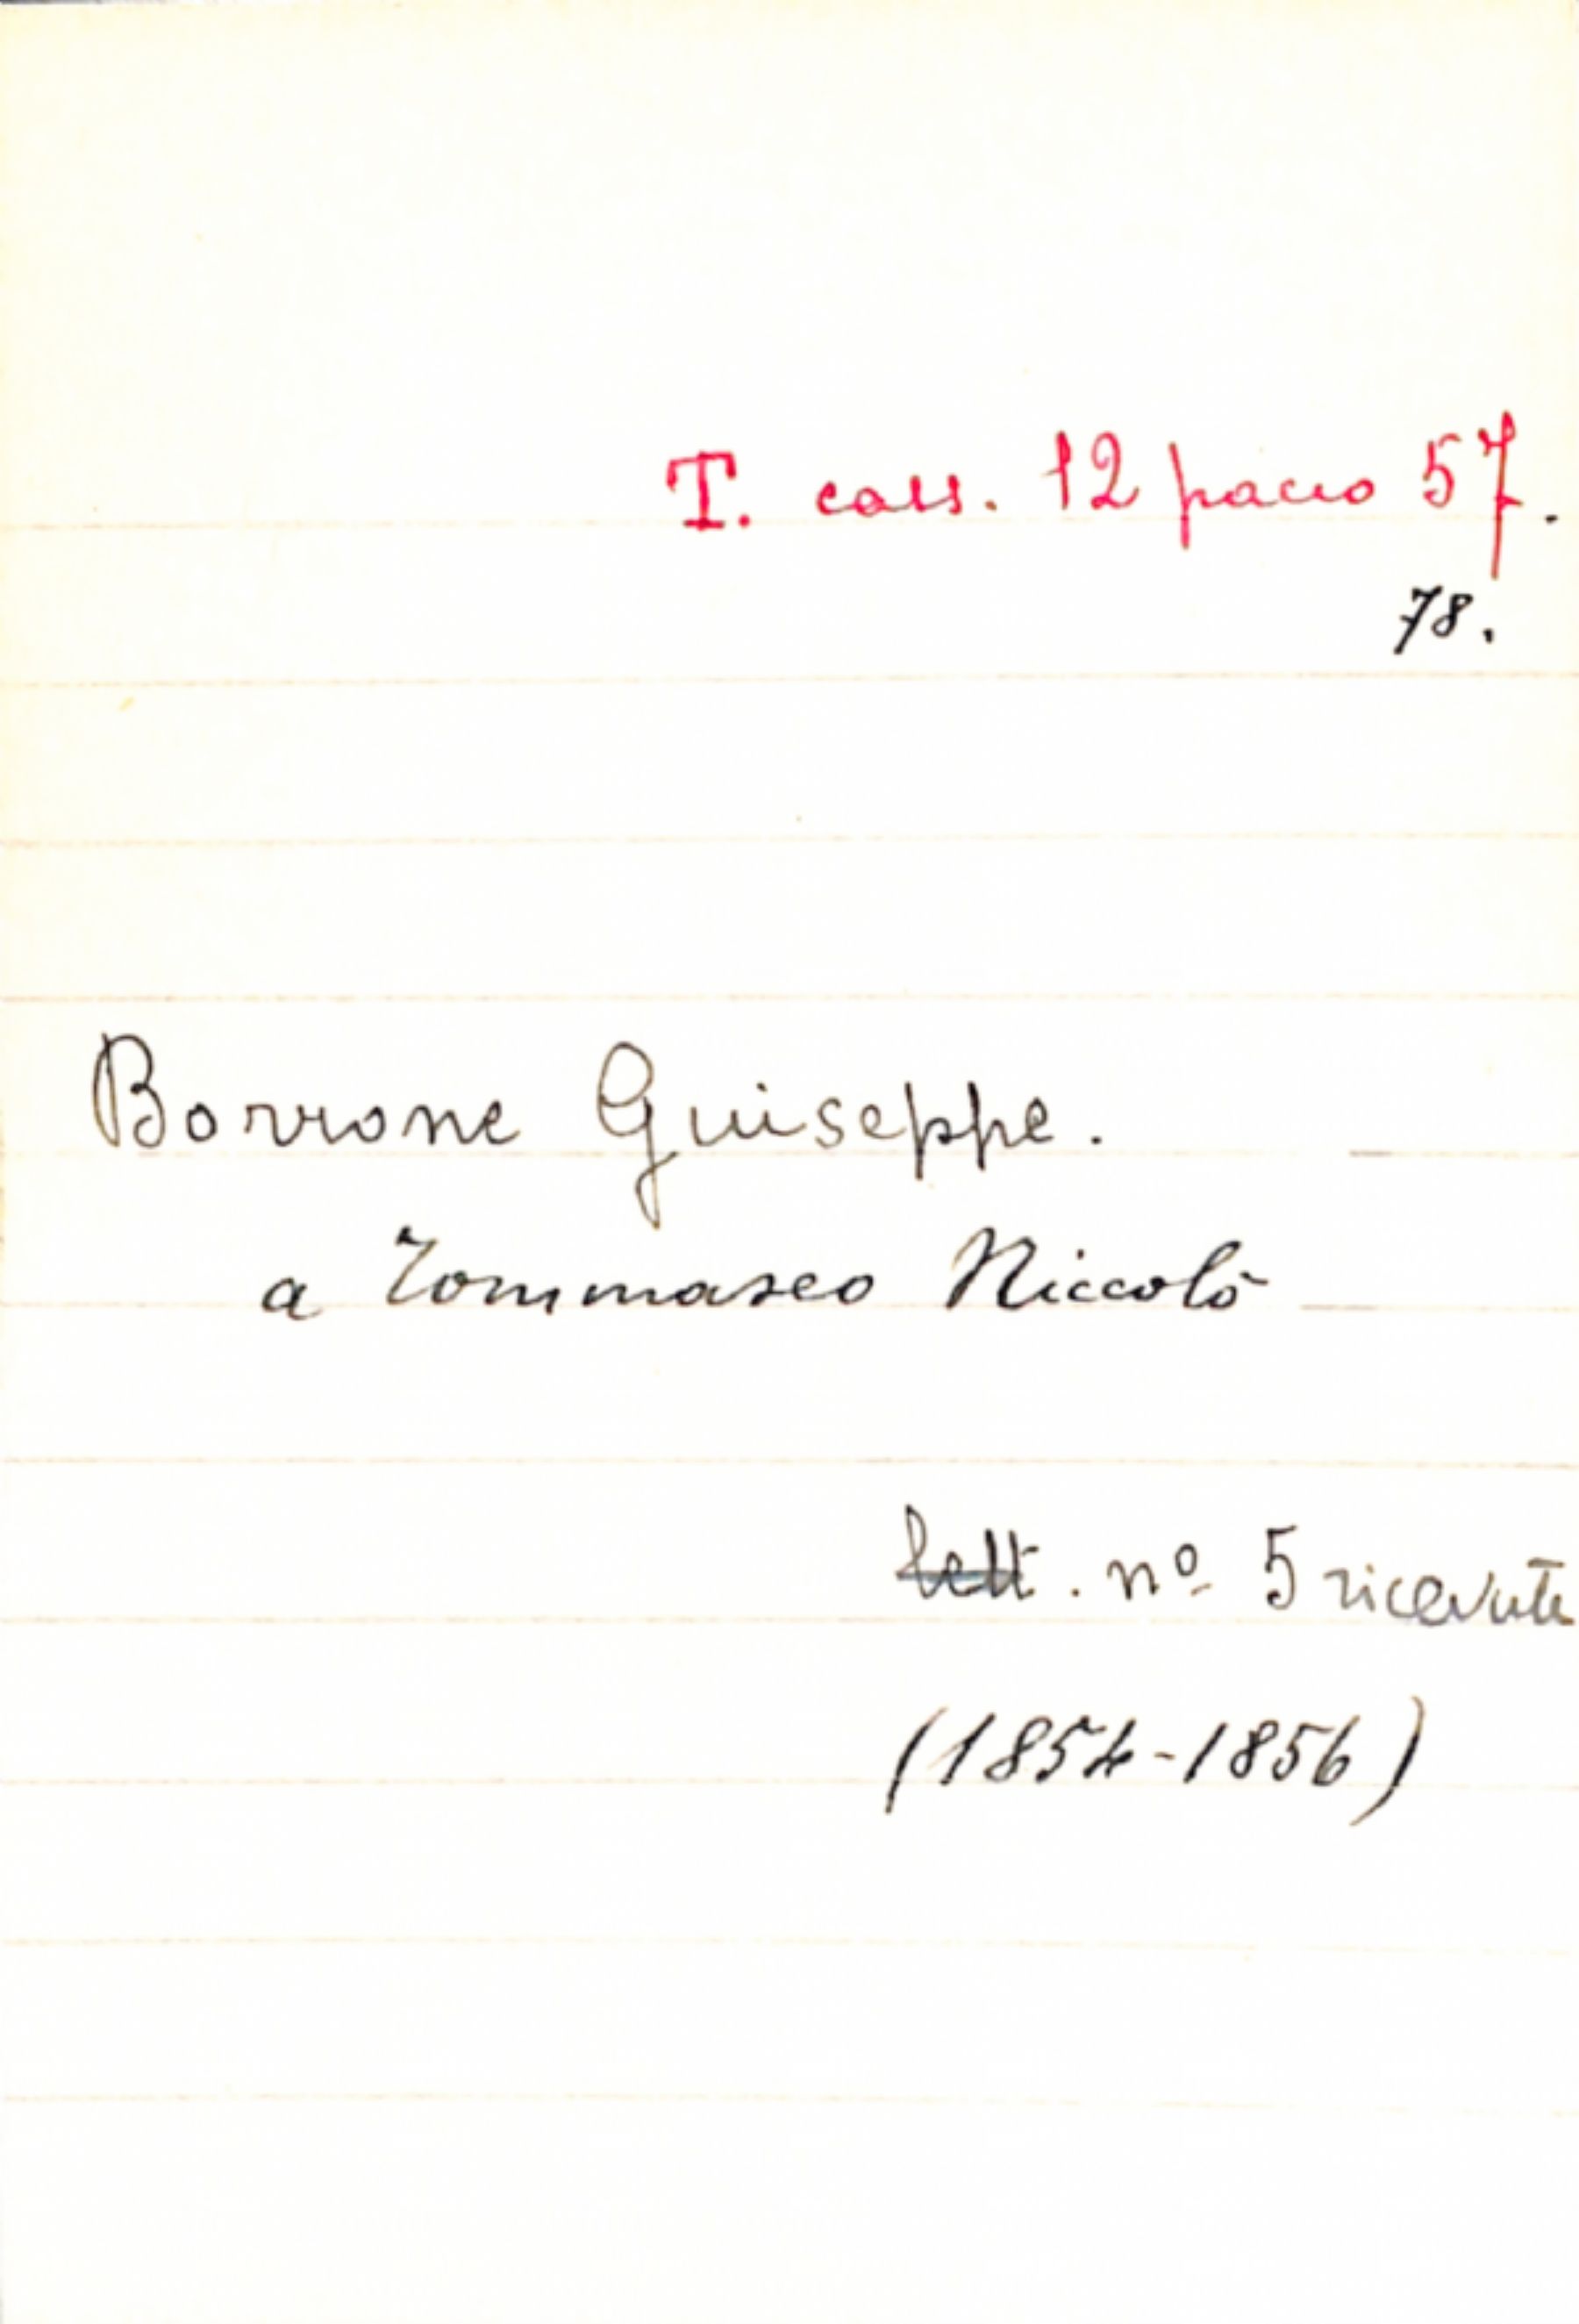 T. cass. 12 pacco 57.
78.
Borrone Giuseppe.
a Tommaseo Niccolò
lett. nº 5 ricevute
(1854-1856)